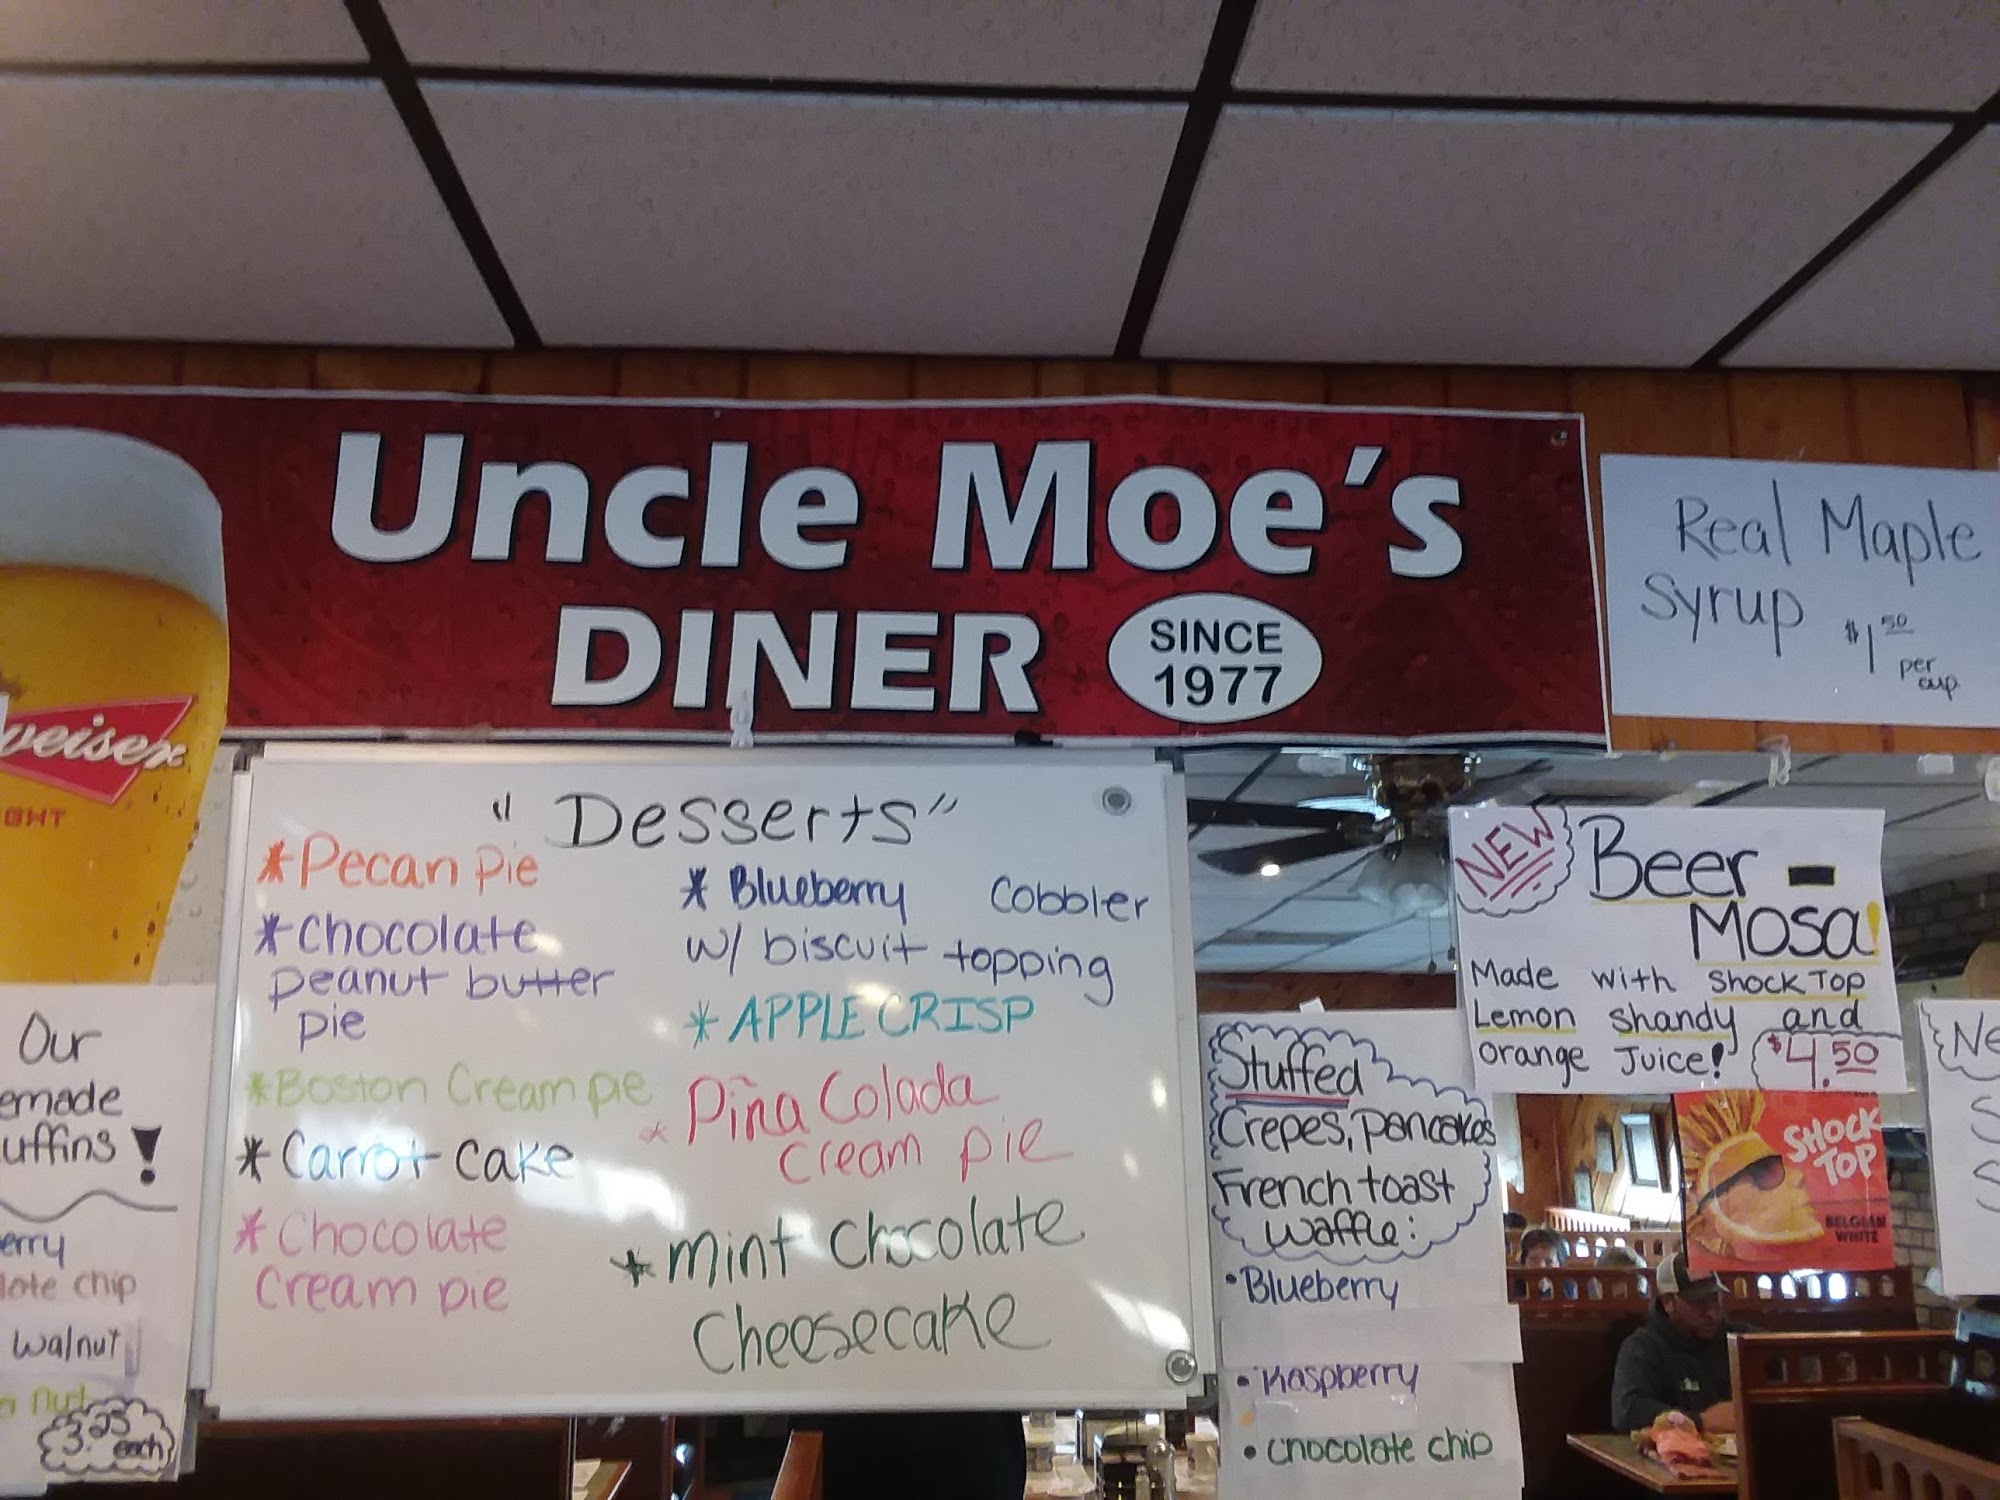 Uncle Moe's
DINER
SINCE
1977
Real Maple
Syrup
$1.50
per
cup
"Desserts"
*Pecan Pie
*Chocolate
peanut butter
pie
*Boston Cream pie
*Carrot cake
*Chocolate
Cream pie
*Blueberry Cobbler
w/ biscuit topping
*APPLE CRISP
*Piña Colada
cream pie
*mint chocolate
cheesecake
NEW
Beer -
Mosa!
Made with Shock Top
Lemon shandy and
orange Juice! $4.50
SHOCK
TOP
BELGIAN
WHITE
Stuffed
Crepes, pancakes
French toast
waffle:
•Blueberry
•Raspberry
•chocolate chip
Our
emade
uffins!
erry
late chip
walnut
nut
3.25
each
weiser
GHT
Ne
S
S